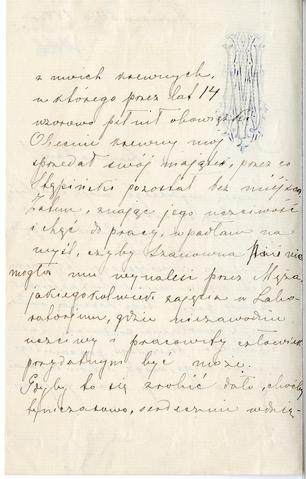 z moich krewnych,
u którego przez lat 14
wzorowo pełnił obowiązki.
Obecnie krewny mój
sprzedał swój majątek, przez co
Stępiński pozostał bez miejsca
Zatem, znając jego uczciwość
i chęć do pracy, wpadłam na
myśl, czyby Szanowna Pani nie
mogła mu wynaleść przez Męża
jakiegokolwiek zajęcia w Labo-
ratorjum, gdzie niezawodnie
uczciwy i pracowity człowiek
przydatnym być może.
Gdyby to się zrobić dało, choćby
tymczasowo, serdecznie wdzię-